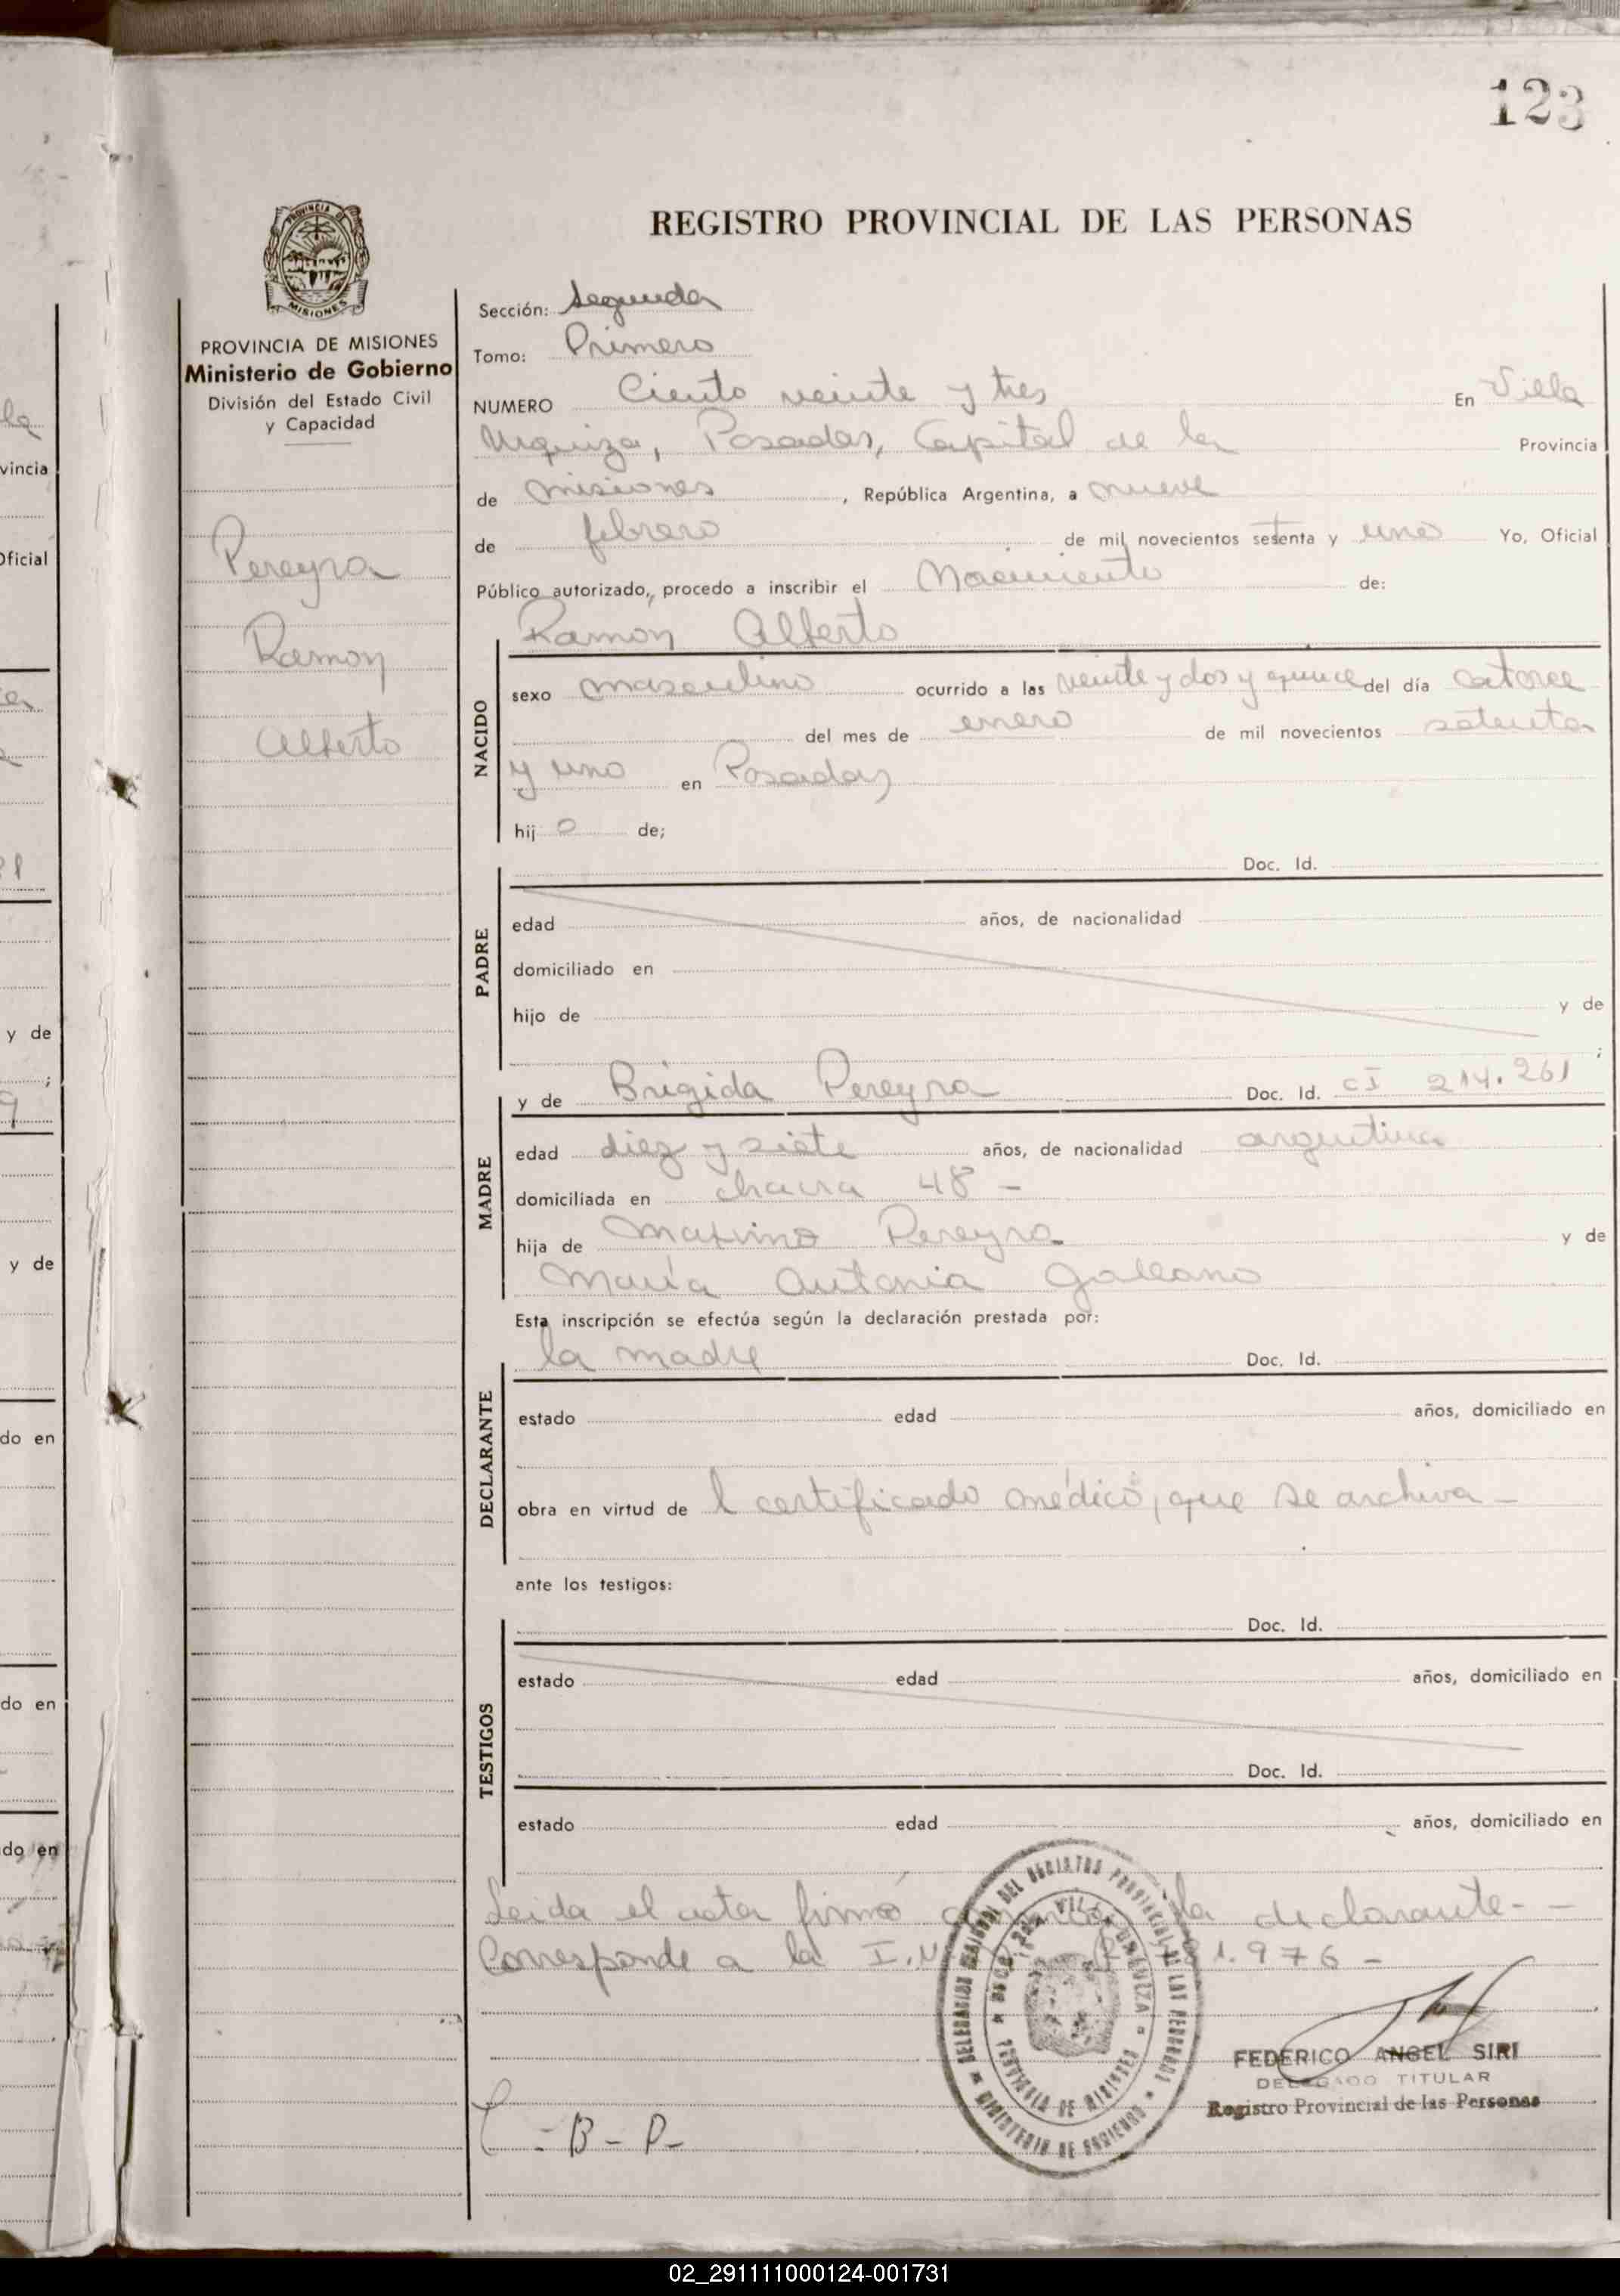 123
REGISTRO PROVINCIAL DE LAS PERSONAS
PROVINCIA DE
MISIONES
PROVINCIA DE MISIONES
Ministerio de Gobierno
División del Estado Civil
y Capacidad
Pereyra
Ramon
Alberto
Sección: Segunda
Tomo: Primero
NUMERO Ciento veinte y tres En Villa
Urquiza, Posadas, Capital de la Provincia
de misiones, República Argentina, a nueve
de febrero de mil novecientos setenta y uno Yo, Oficial
Público autorizado, procedo a inscribir el Nacimiento de:
Ramon Alberto
NACIDO
sexo masculino ocurrido a las veinte y dos y quince del día catorce
del mes de enero de mil novecientos setenta
y uno en Posadas
hijo de;
Doc. Id.
PADRE
edad años, de nacionalidad
domiciliado en
hijo de y de
;
y de Brigida Pereyra Doc. Id. CI 214.261
MADRE
edad diez y siete años, de nacionalidad argentina
domiciliada en chacra 48 -
hija de Pereyra y de
María Antonia Galeano
Esta inscripción se efectúa según la declaración prestada por:
la madre Doc. Id.
DECLARANTE
estado edad años, domiciliado en
obra en virtud del certificado médico, que se archiva -
ante los testigos:
Doc. Id.
TESTIGOS
estado edad años, domiciliado en
Doc. Id.
estado edad años, domiciliado en
Leida el acta firmó la declarante. -
Corresponde a la I. 1.976 -
FEDERICO ANGEL SIRI
DELEGADO TITULAR
Registro Provincial de las Personas
- B - P -
02_291111000124-001731